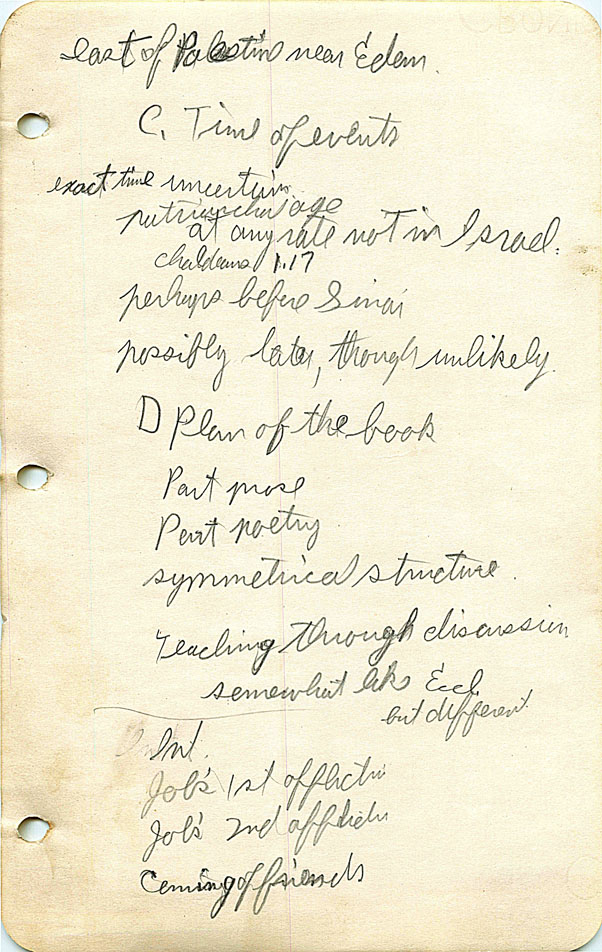 east of Palestine near Edom.
C. Time of events
exact time uncertain.
patriarchal age
at any rate not in Israel.
Chaldeans 1.17
perhaps before Sinai
possibly later, though unlikely.
D Plan of the book
Part prose
Part poetry
symmetrical structure.
Teaching through discussion
somewhat like Eccl.
but different.
Int.
Job's 1st affliction
Job's 2nd affliction
Coming of friends